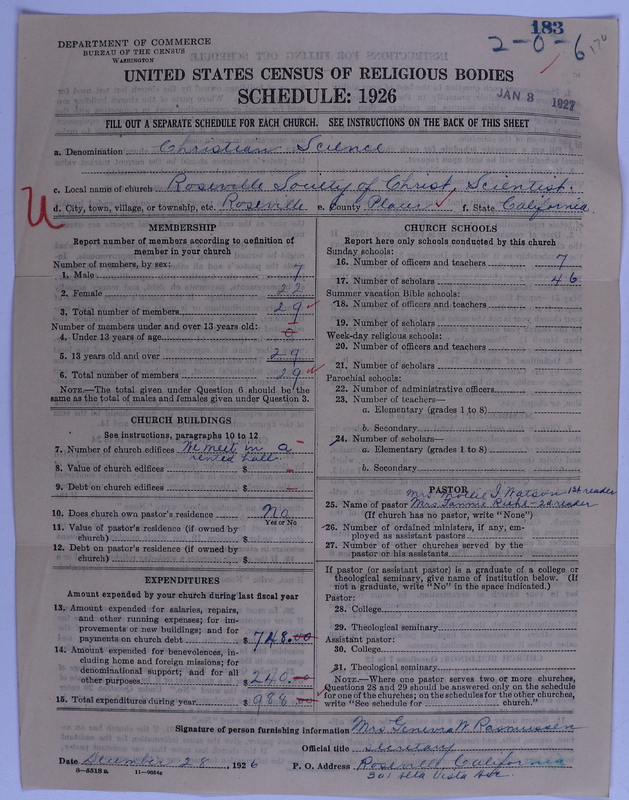 183
2-0-6
176
DEPARTMENT OF COMMERCE
BUREAU OF THE CENSUS
WASHINGTON
UNITED STATES CENSUS OF RELIGIOUS BODIES
SCHEDULE: 1926
JAN 3 1927
FILL OUT A SEPARATE SCHEDULE FOR EACH CHURCH. SEE INSTRUCTIONS ON THE BACK OF THIS SHEET
a. Denomination Christian Science
c. Local name of church Roseville Society of Christ, Scientist.
d. City, town, village, or township, etc. Roseville e. County Placer f. State California
MEMBERSHIP
Report number of members according to definition of
member in your church
Number of members, by sex:
1. Male 7
2. Female 22
3. Total number of members 29
Number of members under and over 13 years old:
4. Under 13 years of age 0
5. 13 years old and over 29
6. Total number of members 29
NOTE.—The total given under Question 6 should be the
same as the total of males and females given under Question 3.
CHURCH BUILDINGS
See instructions, paragraphs 10 to 12
7. Number of church edifices We meet in a
rented hall
8. Value of church edifices $
9. Debt on church edifices $
10. Does church own pastor's residence No
Yes or No
11. Value of pastor's residence (if owned by
church) $
12. Debt on pastor's residence (if owned by
church) $
EXPENDITURES
Amount expended by your church during last fiscal year
13. Amount expended for salaries, repairs,
and other running expenses; for im-
provements or new buildings; and for
payments on church debt $ 748.00
14. Amount expended for benevolences, in-
cluding home and foreign missions; for
denominational support; and for all
other purposes $ 240.00
15. Total expenditures during year $ 988.00
CHURCH SCHOOLS
Report here only schools conducted by this church
Sunday schools:
16. Number of officers and teachers 7
17. Number of scholars 46
Summer vacation Bible schools:
18. Number of officers and teachers
19. Number of scholars
Week-day religious schools:
20. Number of officers and teachers
21. Number of scholars
Parochial schools:
22. Number of administrative officers
23. Number of teachers—
a. Elementary (grades 1 to 8)
b. Secondary
24. Number of scholars—
a. Elementary (grades 1 to 8)
b. Secondary
PASTOR
Mrs Mollie I. Watson 1st reader
25. Name of pastor Mrs. Fannie - 2d reader
(If church has no pastor, write "None")
26. Number of ordained ministers, if any, em-
ployed as assistant pastors
27. Number of other churches served by the
pastor or his assistants
If pastor (or assistant pastor) is a graduate of a college or
theological seminary, give name of institution below. (If
not a graduate, write "No" in the space indicated.)
Pastor:
28. College
29. Theological seminary
Assistant pastor:
30. College
31. Theological seminary
NOTE.—Where one pastor serves two or more churches,
Questions 28 and 29 should be answered only on the schedule
for one of the churches; on the schedules for the other churches,
write "See schedule for church."
Signature of person furnishing information Mrs Geneva W. Rasmussen
Official title Secretary
Date December 28, 1926 P. O. Address Roseville California
8—5518a 11—9084g 301 Alta Vista Ave.